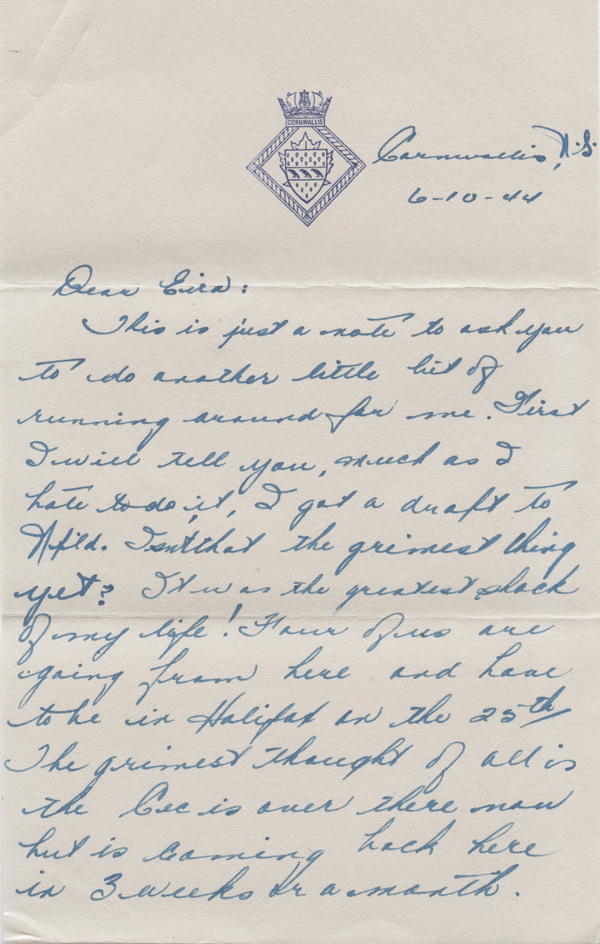 CORNWALLIS
Cornwallis, N.S.
6-10-44
Dear Eira:
This is just a note to ask you
to do another little bit of
running around for me. First
I will tell you, much as I
hate to do it, I got a draft to
Nfld. Isn't that the grimest thing
yet? It was the greatest shock
of my life! Four of us are
going from here and have
to be in Halifax on the 25th
The grimest thought of all is
the Cec is over there now
but is coming back here
in 3 weeks or a month.